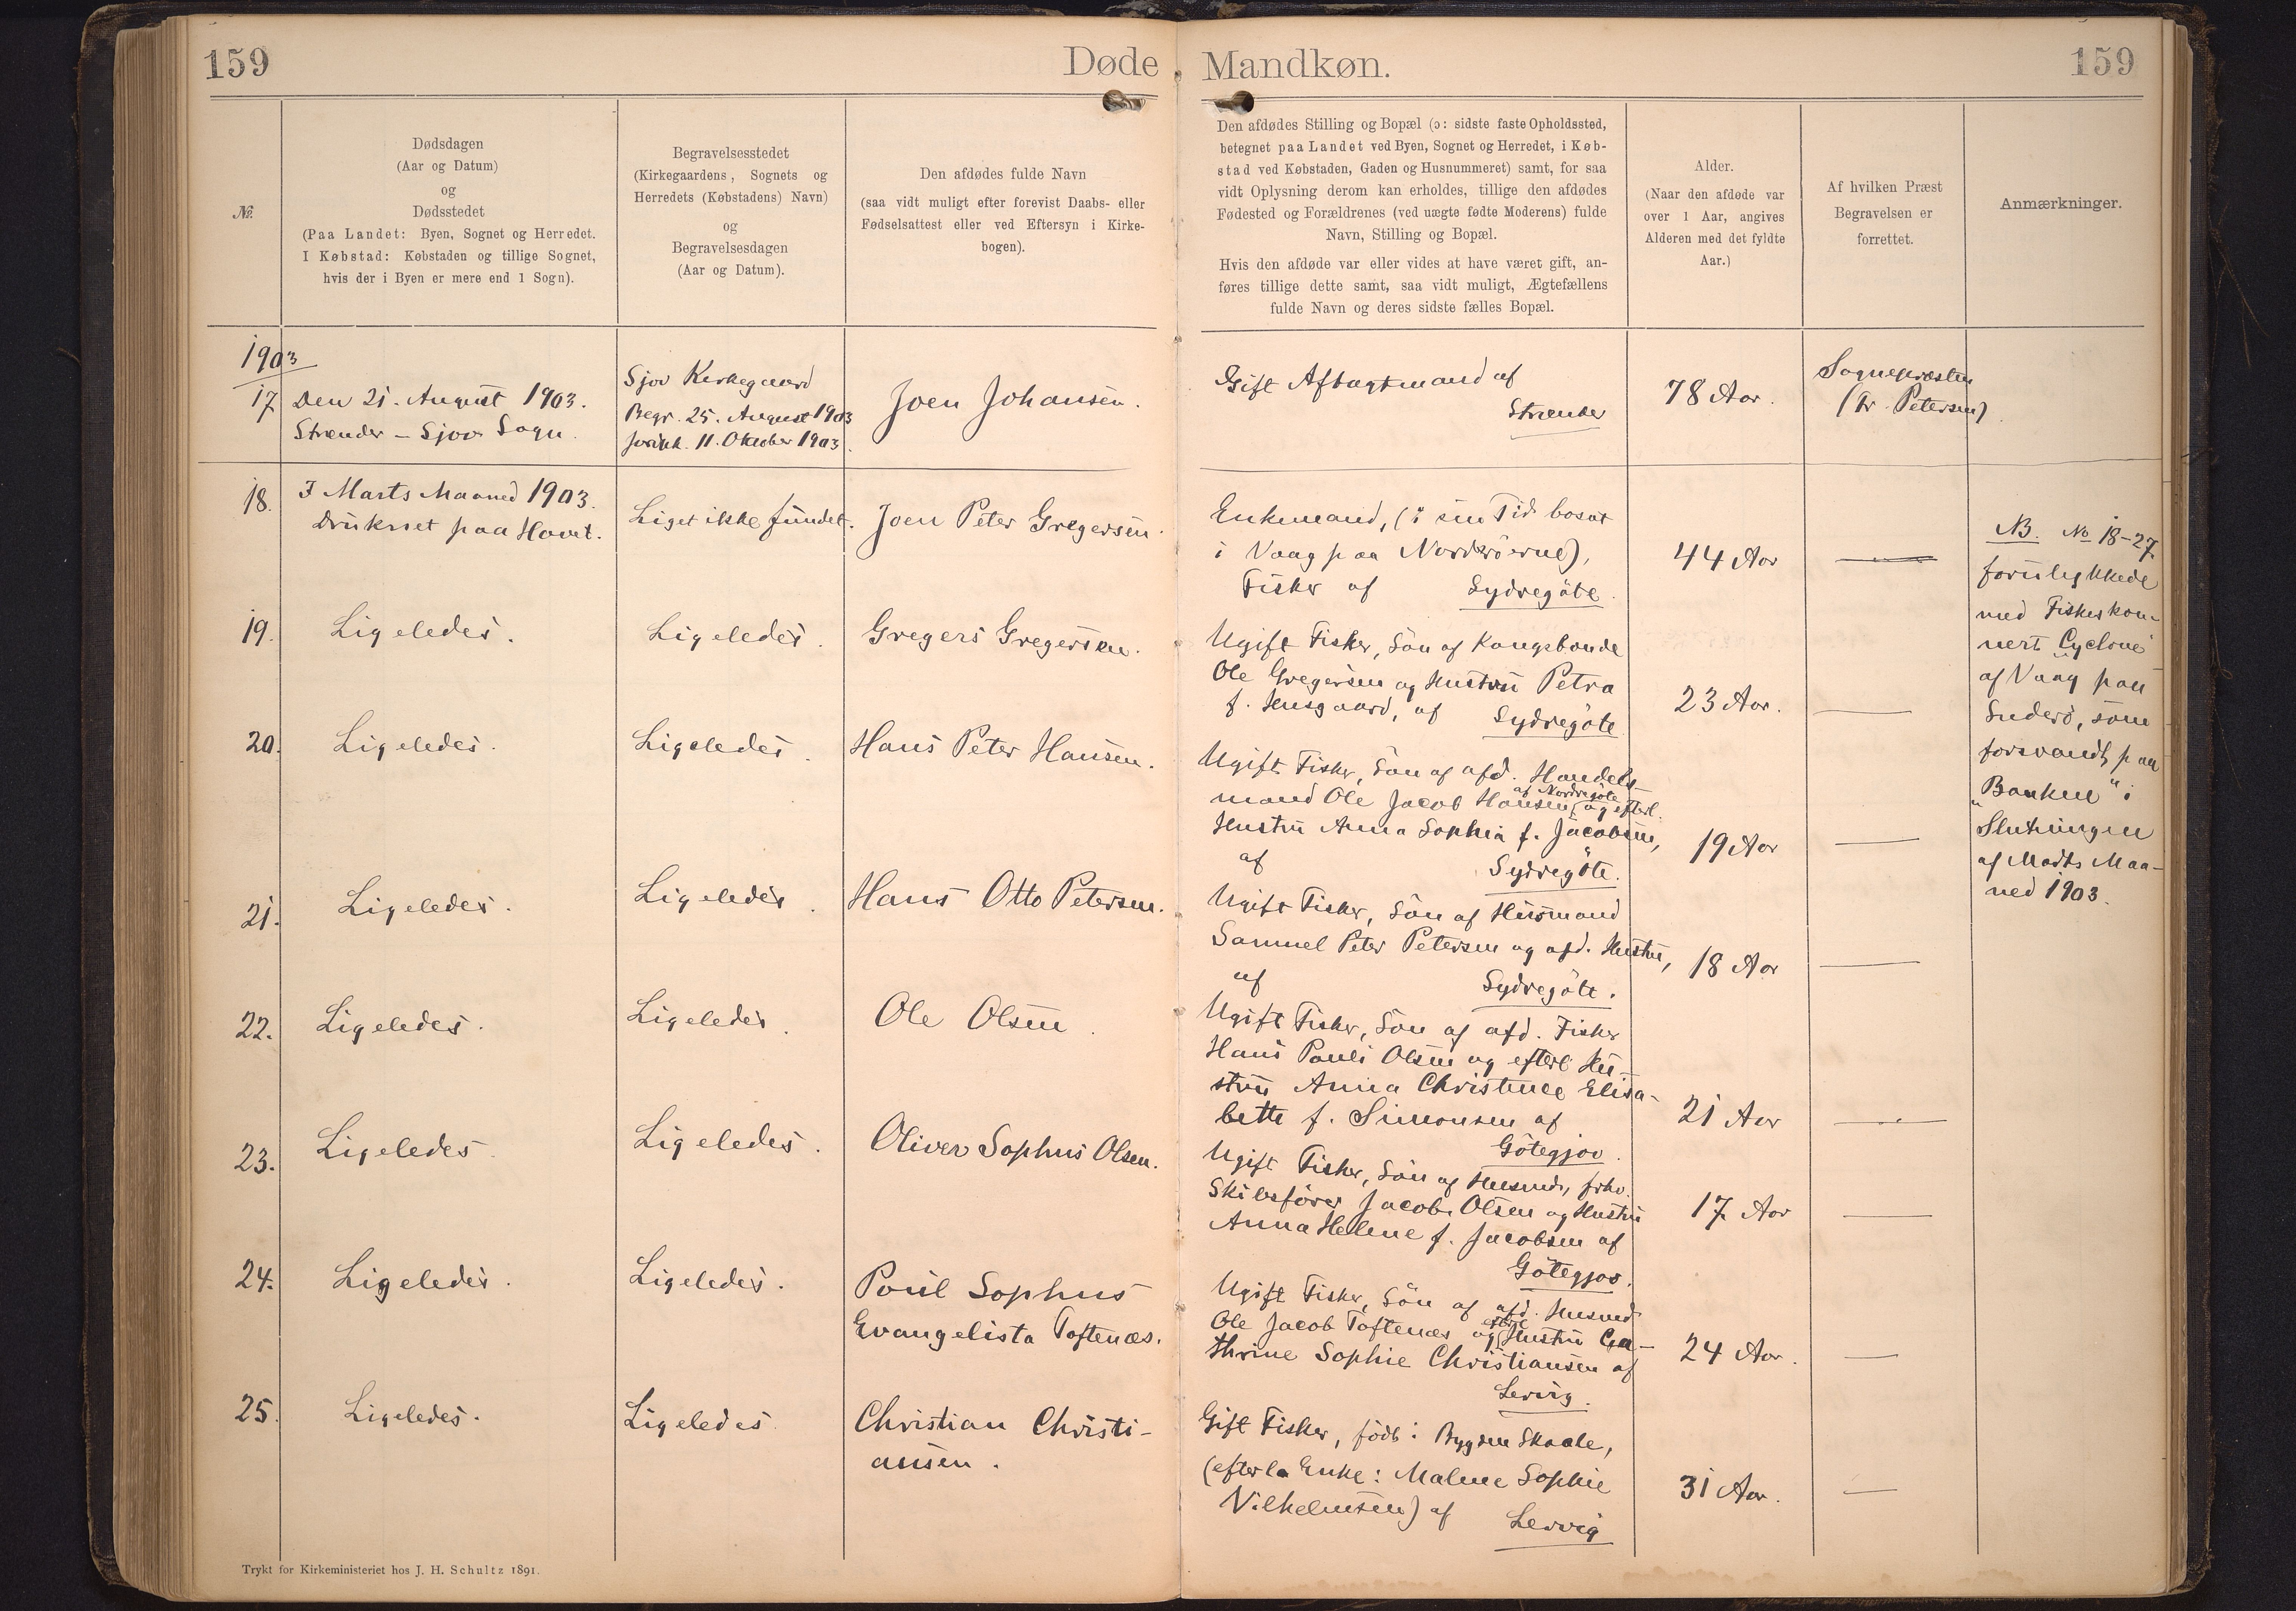 159
Døde
Mandkøn.
159
№
Dødsdagen
(Aar og Datum)
og
Dødsstedet
(Paa Landet: Byen, Sognet og Herredet.
I Købstad: Købstaden og tillige Sognet,
hvis der i Byen er mere end 1 Sogn).
Begravelsesstedet
(Kirkegaardens, Sognets og
Herredets (Købstadens) Navn)
og
Begravelsesdagen
(Aar og Datum).
Den afdødes fulde Navn
(saa vidt muligt efter forevist Daabs- eller
Fødselsattest eller ved Eftersyn i Kirke-
bogen).
Den afdødes Stilling og Bopæl (ɔ: sidste faste Opholdssted,
betegnet paa Landet ved Byen, Sognet og Herredet, i Køb-
stad ved Købstaden, Gaden og Husnummeret) samt, for saa
vidt Oplysning derom kan erholdes, tillige den afdødes
Fødested og Forældrenes (ved uægte fødte Moderens) fulde
Navn, Stilling og Bopæl.
Hvis den afdøde var eller vides at have været gift, an-
føres tillige dette samt, saa vidt muligt, Ægtefællens
fulde Navn og deres sidste fælles Bopæl.
Alder.
(Naar den afdøde var
over 1 Aar, angives
Alderen med det fyldte
Aar.)
Af hvilken Præst
Begravelsen er
forrettet.
Anmærkninger.
1903
17
Den 21. August 1903.
Strænder – Sjov Sogn.
Sjov Kirkegaard
Begr. 25. August 1903
11. Oktober 1903.
Joen Johansen.
Gift Aftægtmand af
Strænder
78 Aar.
Sognepræsten
(Fr. Petersen)
18.
I Marts Maaned 1903.
Druknet paa Havet.
Liget ikke fundet.
Joen Peter Gregersen.
Enkemand, (i sin Tid bosat
i Vaag paa Norderöerne),
Fisker af Sydregöte.
44 Aar
NB. No 18–27
forulykkede
med Fiskeskon-
nert „Cyclone"
af Vaag paa
Suderö, som
forsvandt paa
„Banken" i
Slutningen
af Marts Maa-
ned 1903.
19.
Ligeledes.
Ligeledes.
Gregers Gregersen.
Ugift Fisker, Sön af Kongsbonde
Ole Gregersen og Hustru Petra
f. Husgaard, af Sydregöte
23 Aar.
20.
Ligeledes.
Ligeledes.
Hans Peter Hansen.
Ugift Fisker, Sön af afd. Handels-
mand Ole Jacob Hansen af Nordregöte og efterl.
Hustru Anna Sophia f. Jacobsen,
af Sydregöte.
19 Aar
21.
Ligeledes.
Ligeledes.
Hans Otto Petersen.
Ugift Fisker, Sön af Husmand
Samuel Peter Petersen og afd. Hustru,
af Sydregöte.
18 Aar
22.
Ligeledes.
Ligeledes.
Ole Olsen.
Ugift Fisker, Sön af afd. Fisker
Hans Pauli Olsen og efterl. Hu-
stru Anna Christine Elisa-
beth f. Simonsen af
Götegjov.
21 Aar
23.
Ligeledes.
Ligeledes.
Oliver Sophus Olsen.
Ugift Fisker, Sön af Husmd, frhv.
Skibsförer Jacob Olsen og Hustru
Anna Helene f. Jacobsen af
Götegjov.
17 Aar
24.
Ligeledes.
Ligeledes.
Poul Sophus
Evangelista Toftenæs.
Ugift Fisker, Sön af afd. Husmd
Ole Jacob Toftenæs og efterl Hustru Ca-
thrine Sophie Christiansen af
Lervig.
24 Aar.
25.
Ligeledes.
Ligeledes
Christian Christi-
ansen.
Gift Fisker, född i Bygden Skaale,
(efterla Enke: Malene Sophie
Vilhelmsen) af Lervig
31 Aar.
Trykt for Kirkeministeriet hos J. H. Schultz 1891.